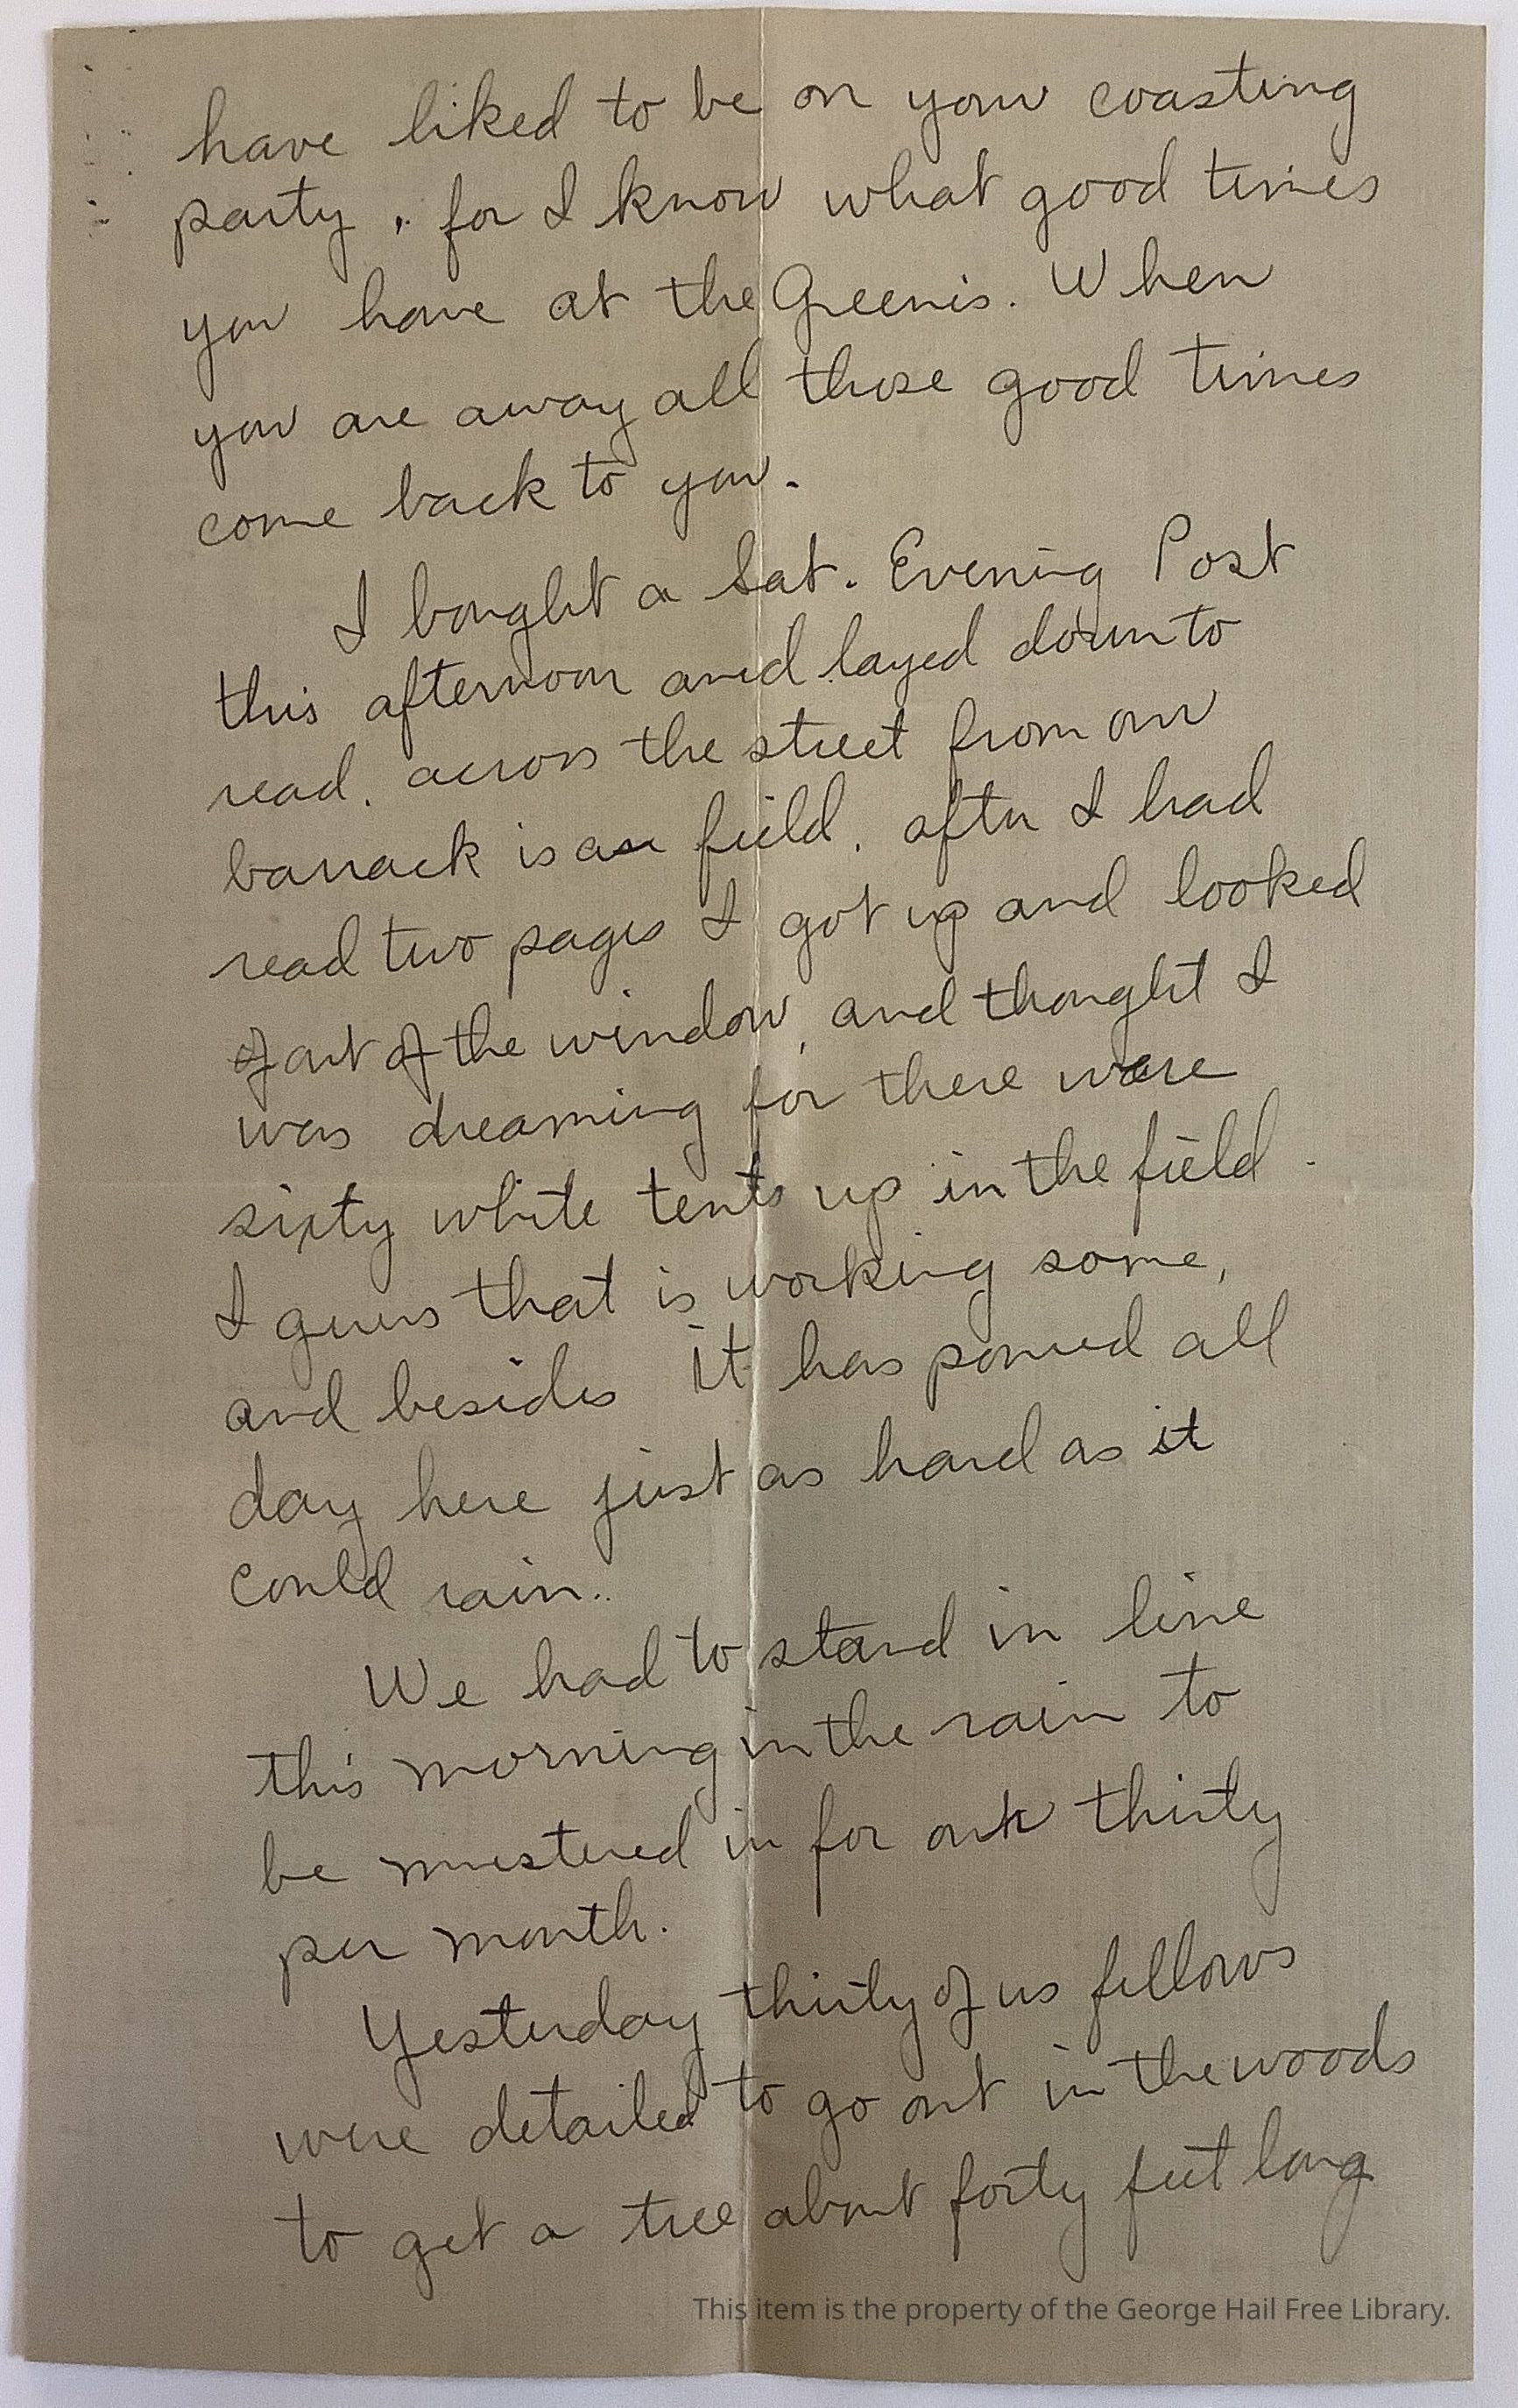 have liked to be on your coasting
party, for I know what good times
you have at the Greenis. When
you are away all those good times
come back to you.
I bought a Sat. Evening Post
this afternoon and layed down to
read. across the street from our
barrack is a field. after I had
read two pages I got up and looked
of out of the window, and thought I
was dreaming for there were
sixty white tents up in the field.
I guess that is working some,
and besides it has poured all
day here just as hard as it
could rain..
We had to stand in line
this morning in the rain to
be mustered in for our thirty
per month.
Yesterday thirty of us fellows
were detailed to go out in the woods
to get a tree about forty feet long
This item is the property of the George Hail Free Library.